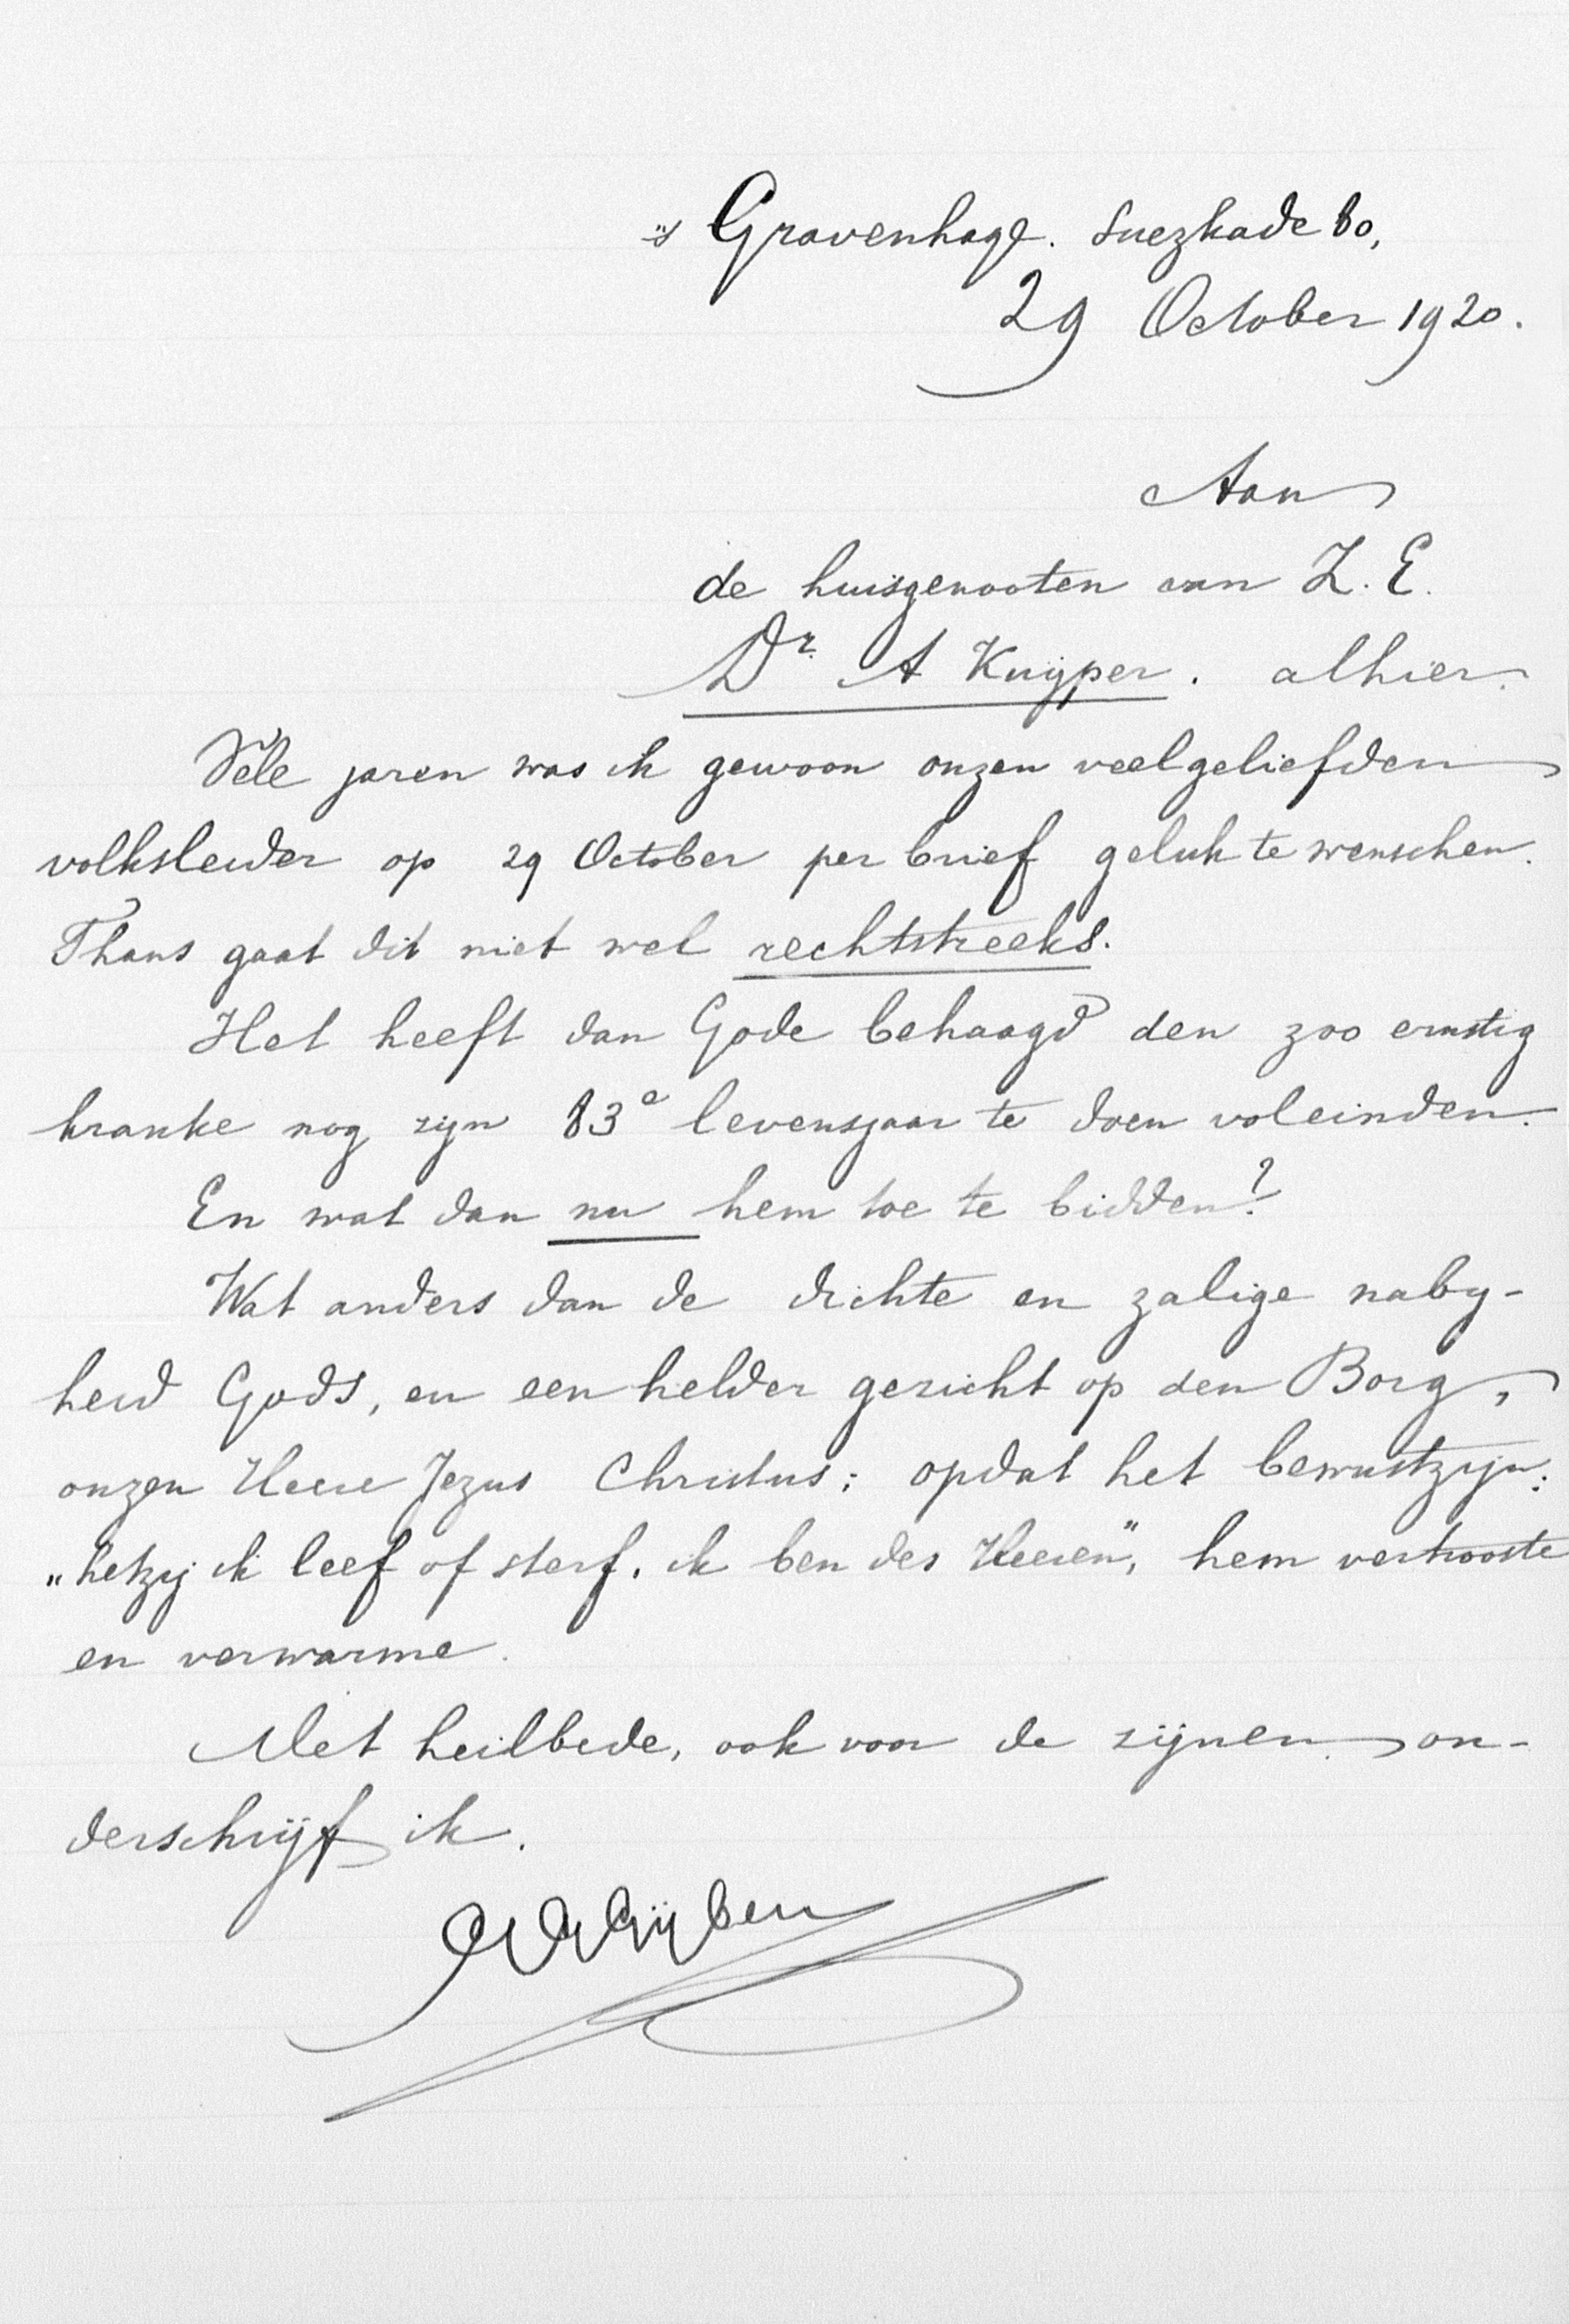 's Gravenhage. Suezkade 60,
29 October 1920.
Aan
de huisgenooten van Z. E.
Dr. A Kuyper. alhier.
Vele jaren was ik gewoon onzen veelgeliefden
volksleider op 29 October per brief geluk te wenschen.
Thans gaat dit niet wel rechtstreeks.
Het heeft dan Gode behaagd den zoo ernstig
kranke nog zijn 83e levensjaar te doen voleinden.
En wat dan nu hem toe te bidden?
Wat anders dan de dichte en zalige naby-
heid Gods, en een helder gezicht op den Borg,
onzen Heere Jezus Christus; opdat het bewustzyn:
„hetzij ik leef of sterf, ik ben des Heeren", hem vertrooste
en verwarme.
Met heilbede, ook voor de zijnen, on-
derschrijf ik.